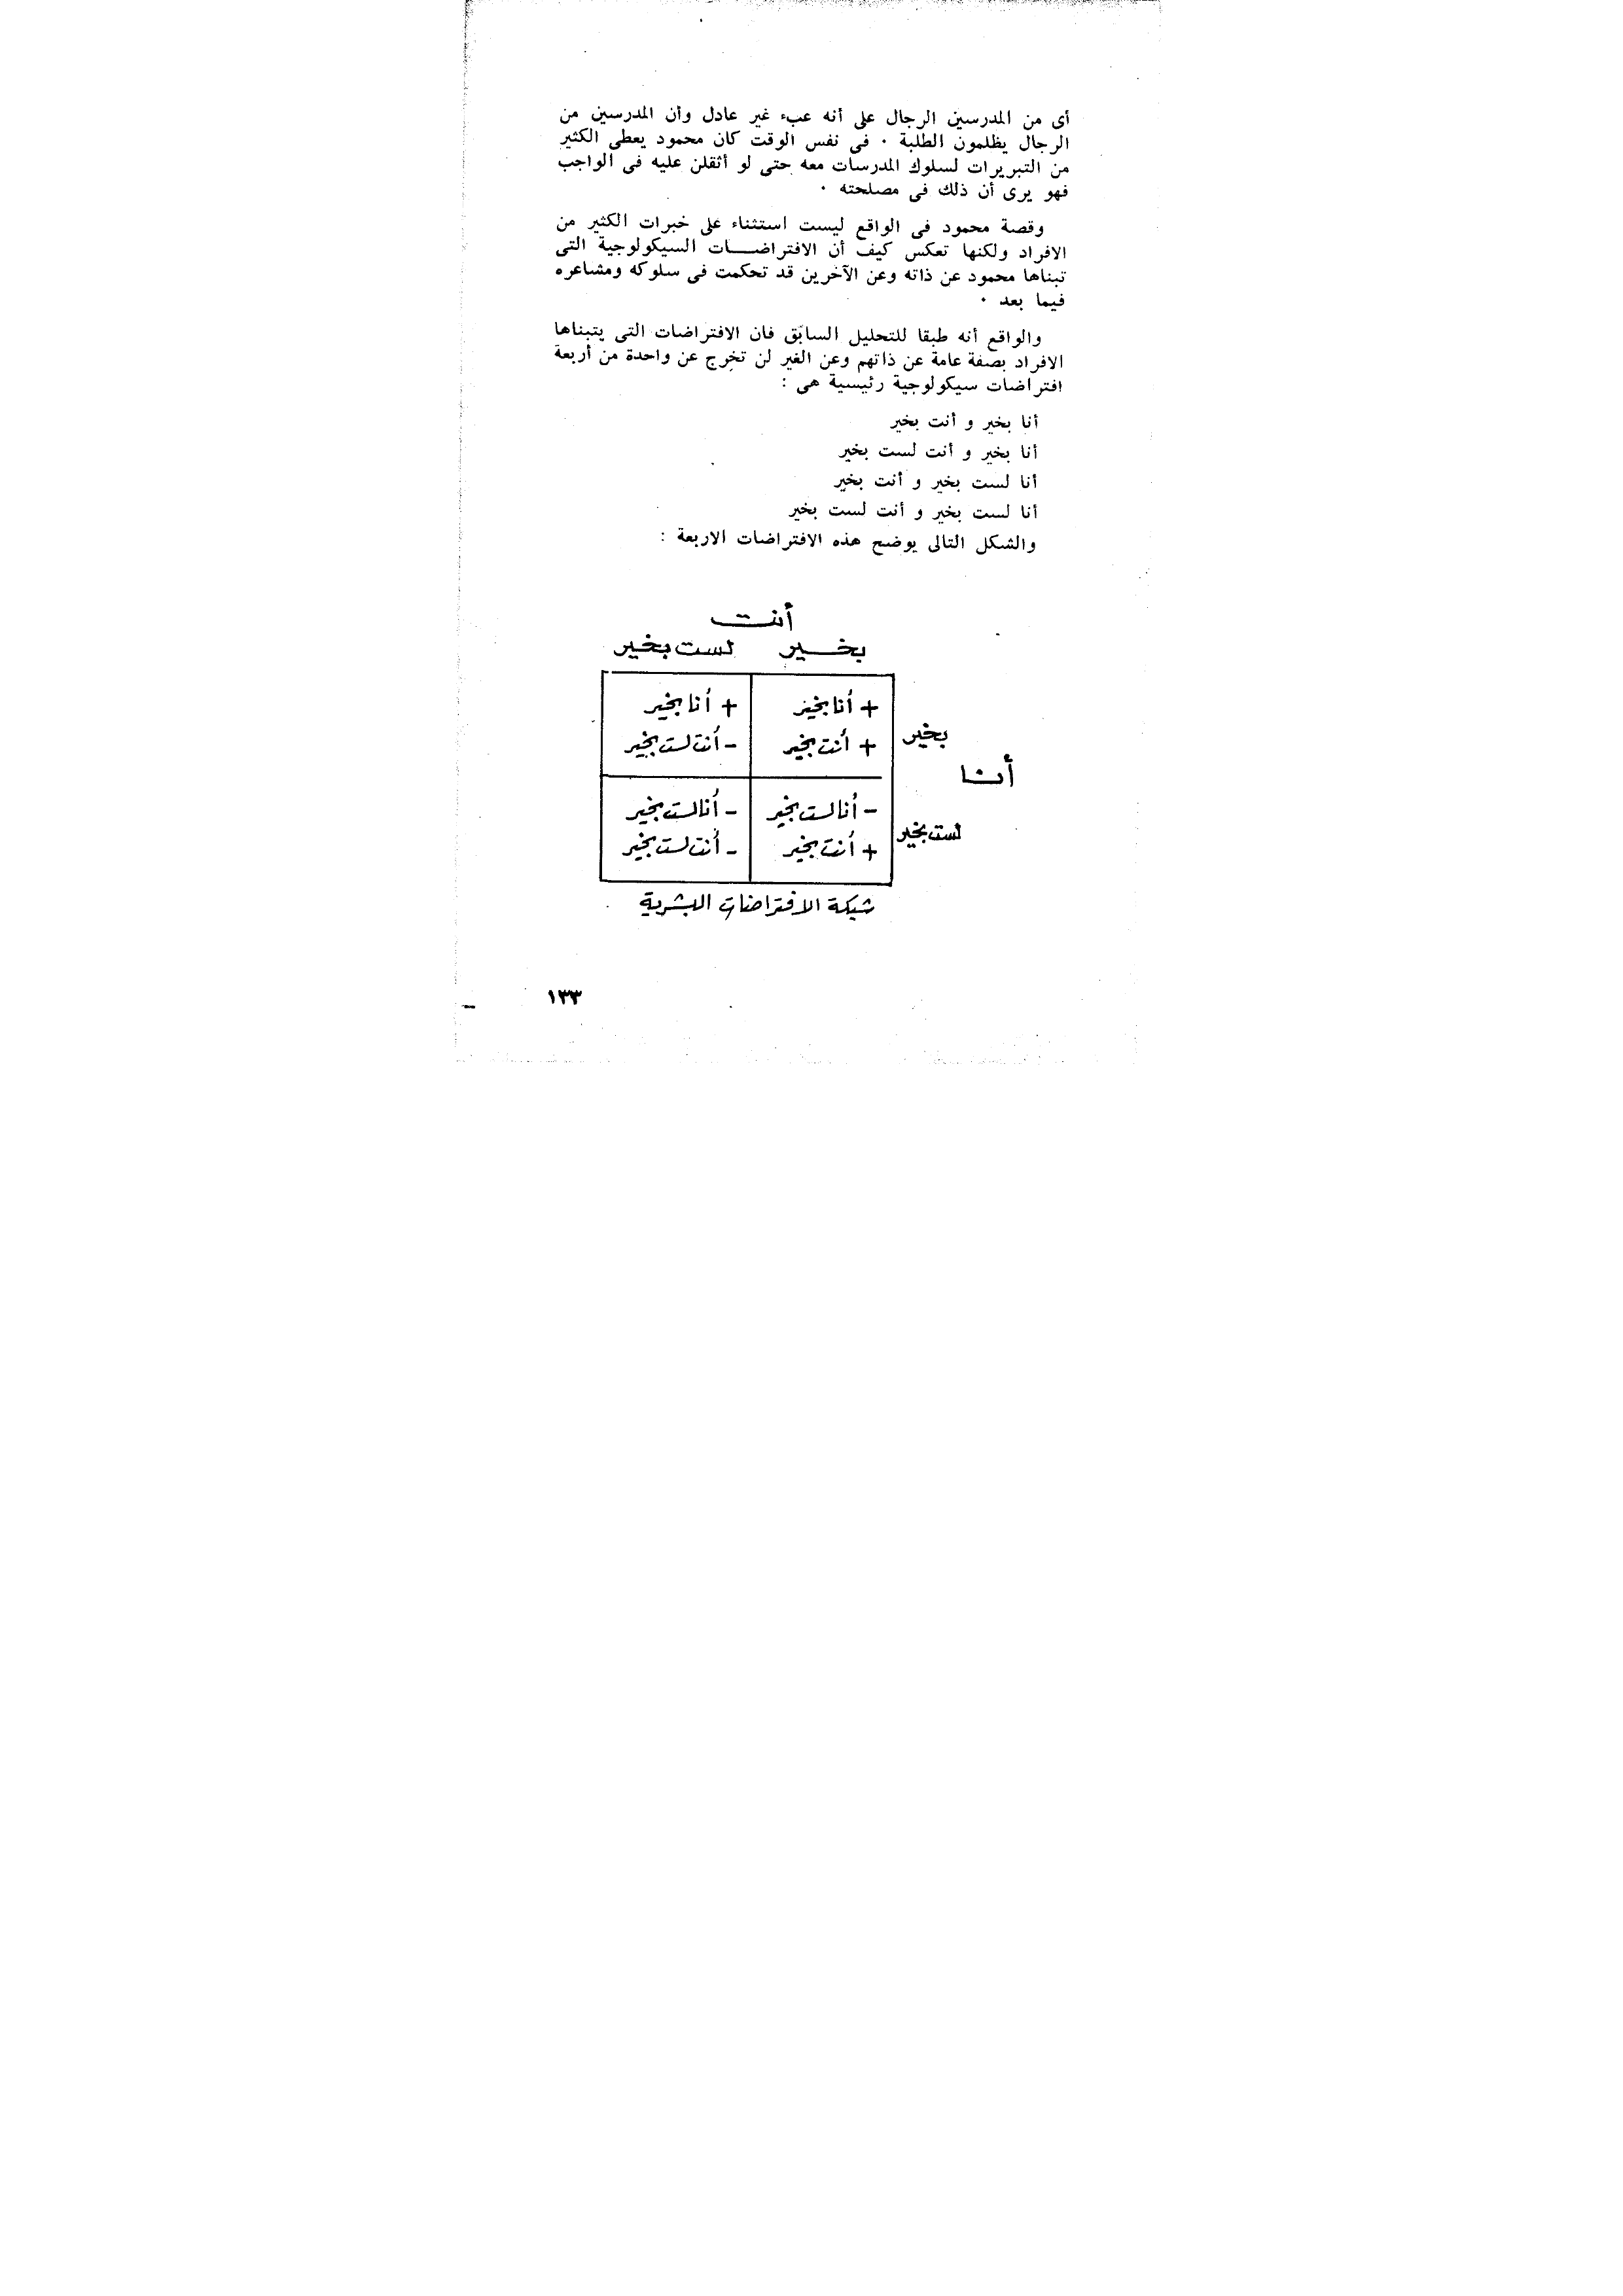 أى من المدرسين الرجال على أنه عبء غير عادل وأن المدرسين من
الرجال يظلمون الطلبة ٠ فى نفس الوقت كان محمود يعطى الكثير
من التبريرات لسلوك المدرسات معه حتى لو أثقلن عليه فى الواجب
فهو يرى أن ذلك فى مصلحته ٠
وقصة محمود فى الواقع ليست استثناء على خبرات الكثير من
الافراد ولكنها تعكس كيف أن الافتراضـــات السيكولوجية التى
تبناها محمود عن ذاته وعن الآخرين قد تحكمت فى سلوكه ومشاعره
فيما بعد ٠
والواقع أنه طبقا للتحليل السابق فان الافتراضات التى يتبناها
الافراد بصفة عامة عن ذاتهم وعن الغير لن تخرج عن واحدة من أربعة
افتراضات سيكولوجية رئيسية هى :
أنا بخير و أنت بخير
أنا بخير و أنت لست بخير
أنا لست بخير و أنت بخير
أنا لست بخير و أنت لست بخير
والشكل التالى يوضح هذه الافتراضات الاربعة :
أنت
بخــير لست بخير
+ أنا بخير + أنا بخير
بخير
+ أنت بخير - أنت لست بخير
أنا
- أنا لست بخير - أنا لست بخير
لست بخير
+ أنت بخير - أنت لست بخير
شبكة الافتراضات البشرية
١٣٣